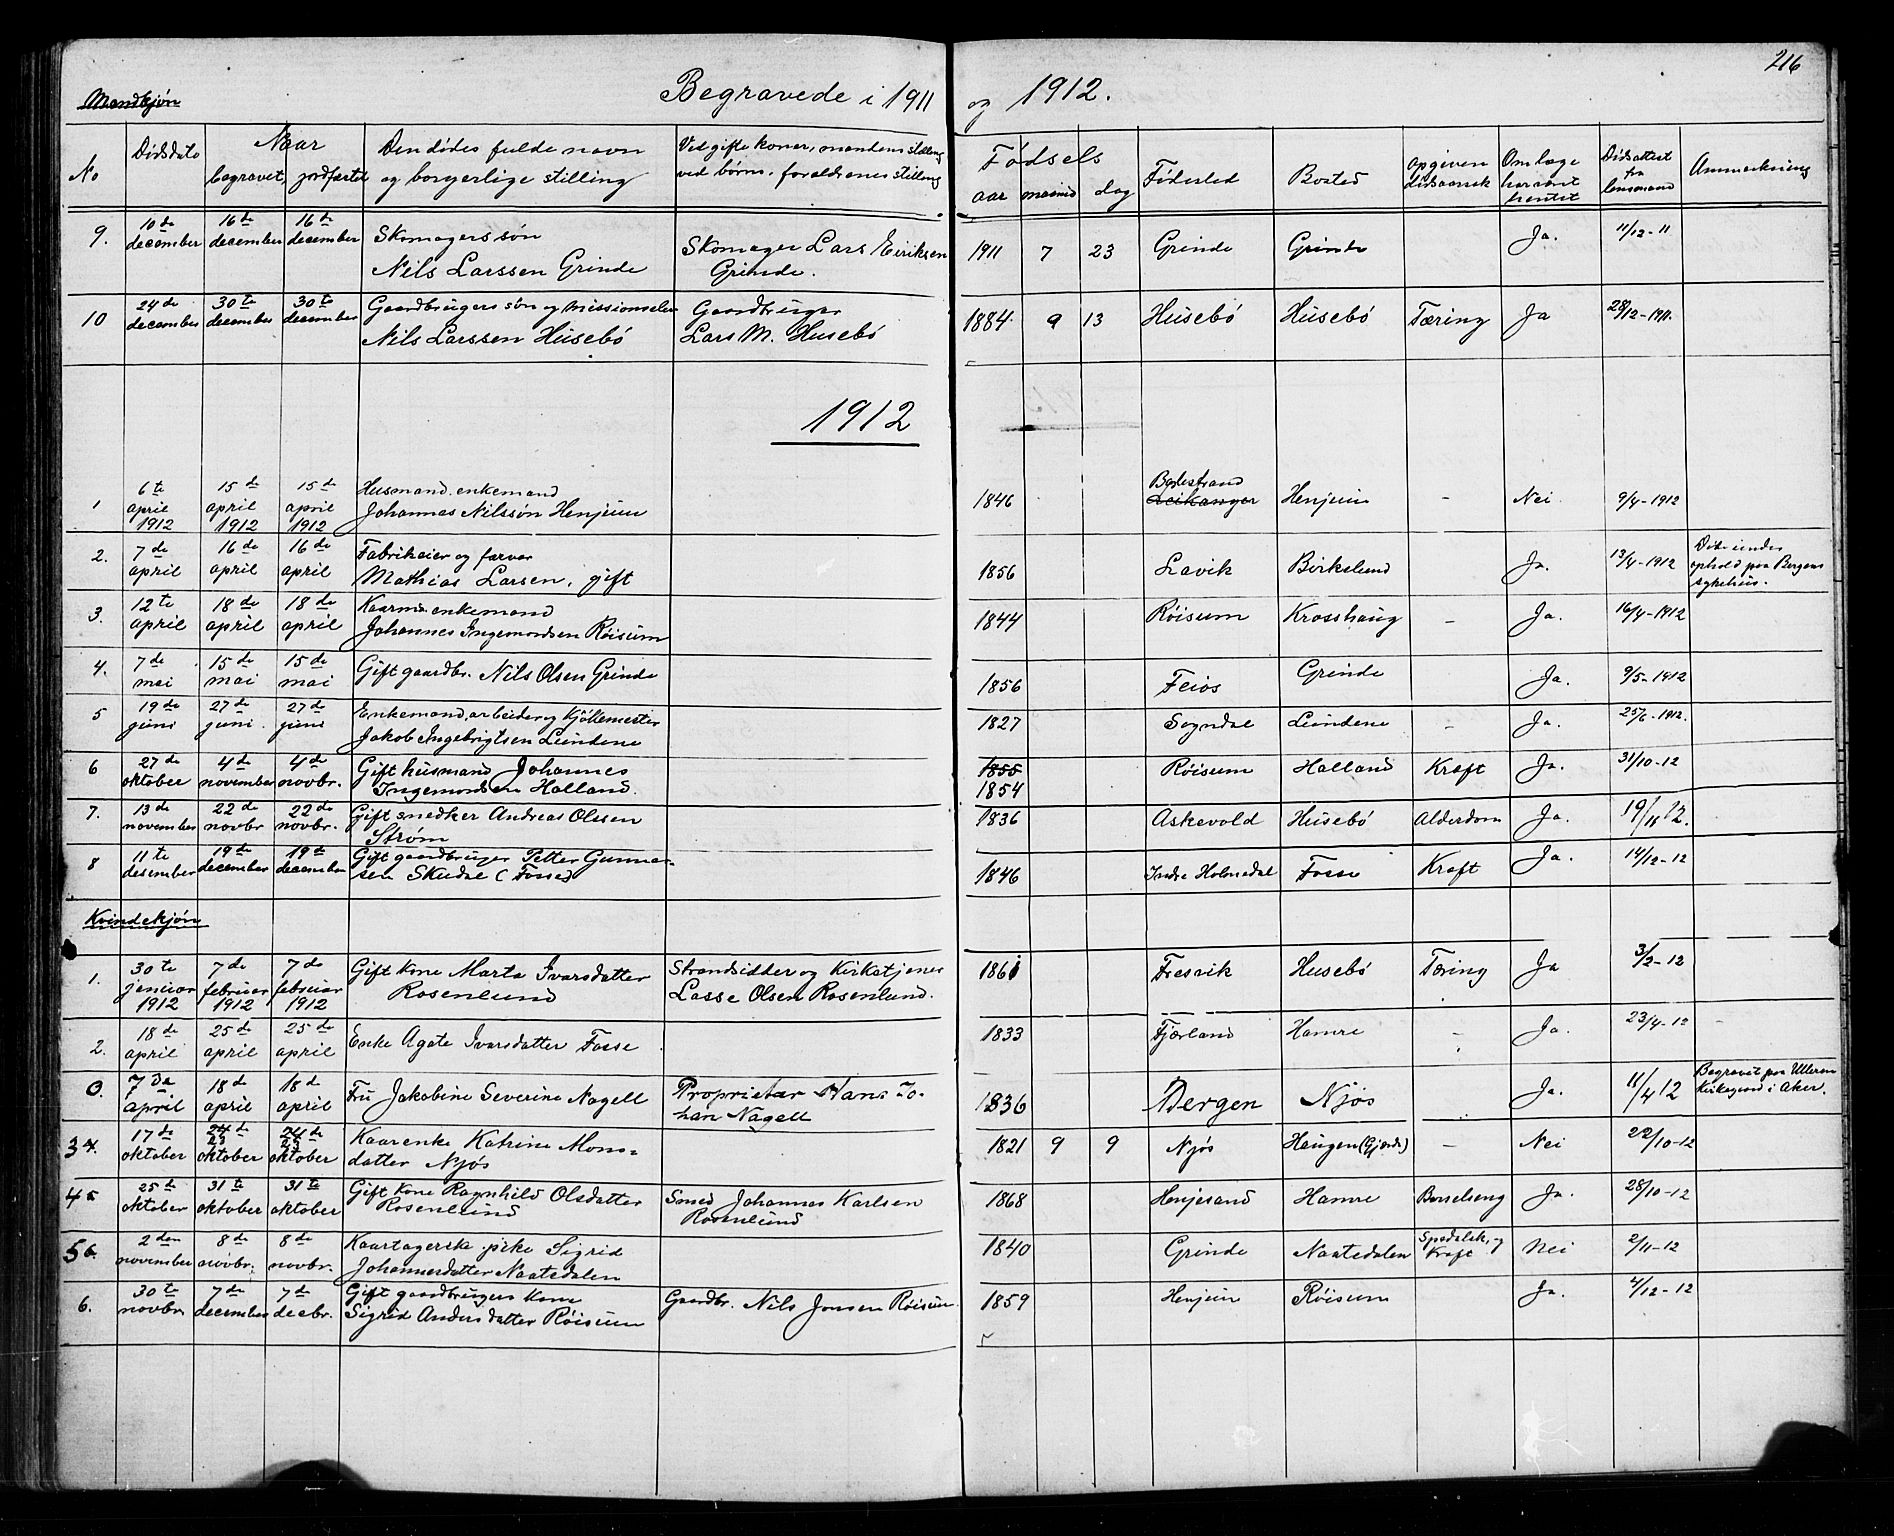 216
Mandkjøn
Begravede i 1911 og 1912.
No
Dødsdato
Naar
begravet, jordfæstet
Den dødes fulde navn
og borgerlige stilling
Ved gifte koner, mandens stilling
ved børn, forældrenes stilling
Fødsels
aar maaned dag
Fødested
Bosted
Opgiven
dødsaarsak
Om læge
har været
hentet
Dødsattest
fra
lensmand
Anmerkning
9. 10de december 16de december 16de december
Skomagerssøn
Nils Larssen Grinde
Skomager Lars Eiriksen
Grinde.
1911 7 23 Grinde Grinde Ja. 11/12-11
10 24de december 30te december 30te december
Gaardbrugers søn og missionselev
Nils Larssen Husebó
Gaardbruger
Lars M. Husebó
1884 9 13 Husebó Husebó Tæring Ja 28/12-1911.
1912
1 6te april 1912 15de april 1912 15de april 1912
Husmand. enkemand
Johannes Nilssøn Henjum
1846 Balestrand Leikanger Henjum - Nei 9/4-1912
2. 7de april 16de april 16de april
Fabrikeier og farver
Mathias Larsen, gift
1856 Lavik Birkelund Ja. 13/4-1912
Døde under
ophold paa Bergens
sykehus.
3. 12te april 18de april 18de april
Kaarm. enkemand
Johannes Ingemordsen Röisum
1844 Röisum Krosshaug - Ja. 16/4-1912
4. 7de mai 15de mai 15de mai
Gift gaardbr. Nils Olsen Grinde
1856 Feios Grinde Ja. 9/5-1912
5 19de juni 27de juni 27de juni
Enkemand, arbeider og Kjökemester
Jakob Ingebrigtsen Lundene
1827 Sogndal Lundene - Ja. 25/6-1912.
6 27de oktober 4de november 4de novbr.
Gift husmand Johannes
Ingemordsen Halland.
1855 1854 Röisum Halland Kræft Ja. 31/10-12
7. 13de november 22de novbr 22de novbr.
Gift snedker Andreas Olssen
Strøm
1836 Askevold Husebó Alderdom Ja. 19/11 12.
8 11te desember 19de december 19de december
Gift gaardbruger Petter Gunnar-
sen Skudal (Fosse)
1846 Indre Holmedal Fosse Kræft Ja. 14/12-12
Kvindekjøn
1. 30te januar 1912 7de februar 1912 7de februar 1912
Gift Kone Marta Ivarsdatter
Rosenlund
Strandsidder og Kirketjener
Lasse Olsen Rosenlund.
1861 Fresvik Husebó Tæring Ja 3/2-12
2. 18de april 25de april 25de april
Enke Agate Ivarsdatter Fosse
1833 Fjærland Hamre - Ja. 23/4-12
0. 7de april 18de april 18de april
Fru Jakobine Severine Nagell
Proprietær Hans Jo-
han Nagell
1836 Bergen Njøs Ja. 11/4 12
Begravet paa Ullern
Kirkegaard i Aker.
3 4. 17de oktober 24 23 oktober 24de 23 oktober
Kaarenke Katrine Mons=
datter Njøs
1821 9 9 Njøs Haugen (Gjærde) - Nei 22/10-12
4 5 25de oktober 31te oktober 31te oktober
Gift Kone Ragnhild Olsdatter
Rosenlund
Smed Johannes Karlsen
Rosenlund
1868 Henjesand Hamre Barselseng Ja. 28/10-12
5 6. 2den november 8de novbr. 8de novbr.
Kaartagerske, pike Sigrid
Johannesdatter Naatedalen
1840 Grinde Naatedalen Spedalsk, og Kræft Nei 2/11-12
6. 30te novbr. 7de december 7de decbr.
Gift gaardbrugers kone
Sigrid Andersdatter Röisum
Gaardbr. Nils Jonsen Röisum.
1859 Henjum Röisum Ja. 4/12-12